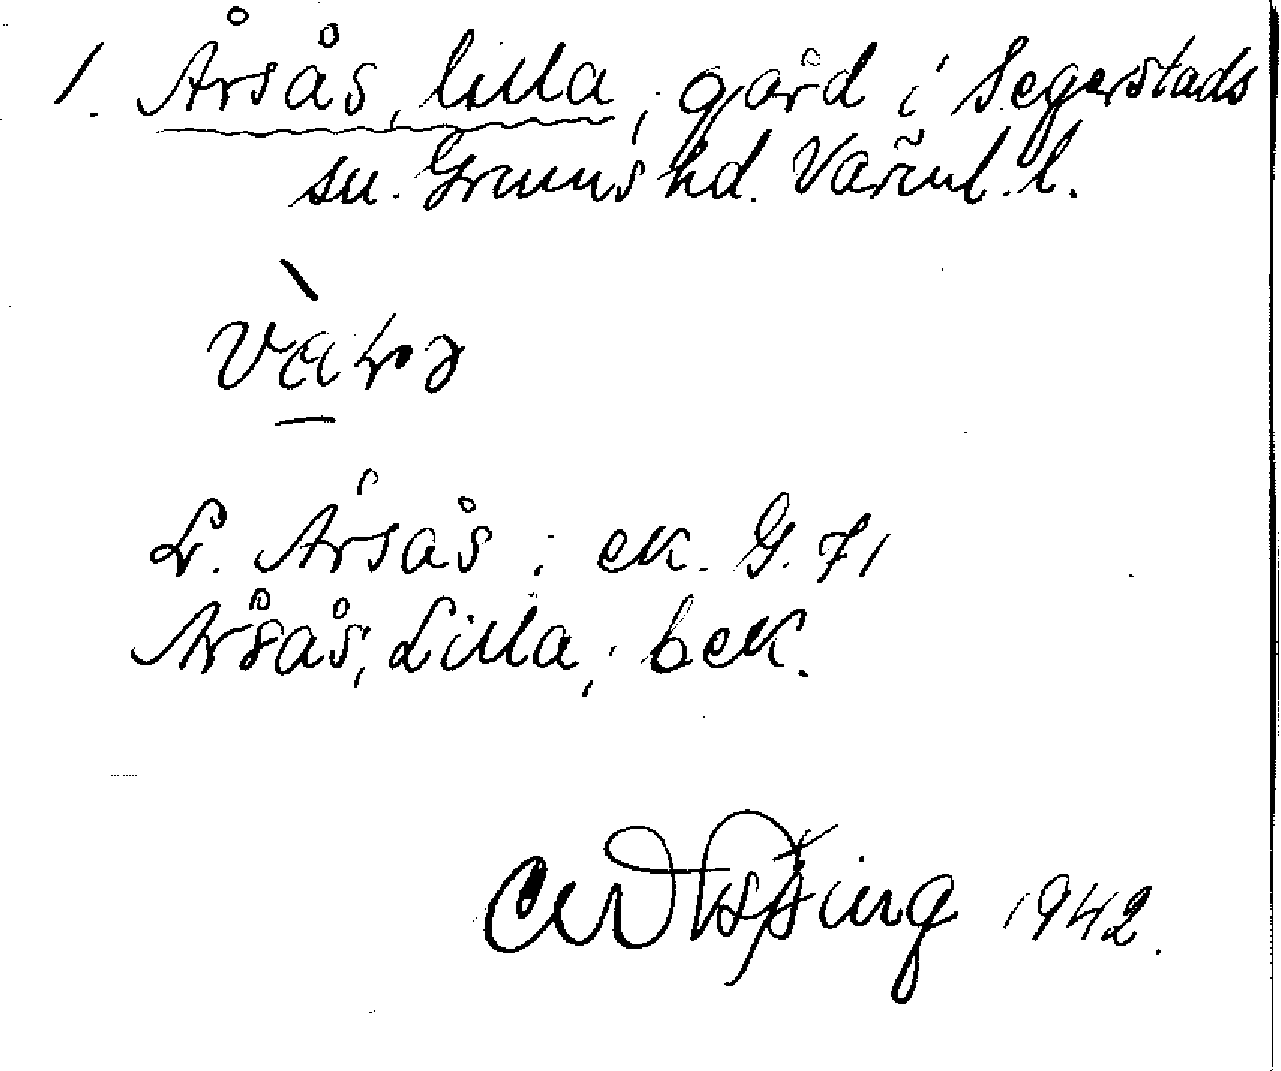 1. Årsås, lilla, gård i Segerstads
sn. Grums hd. Värml. l.
L. Årsås : ek. G. 71
Årsås, Lilla, : bek.
1942.